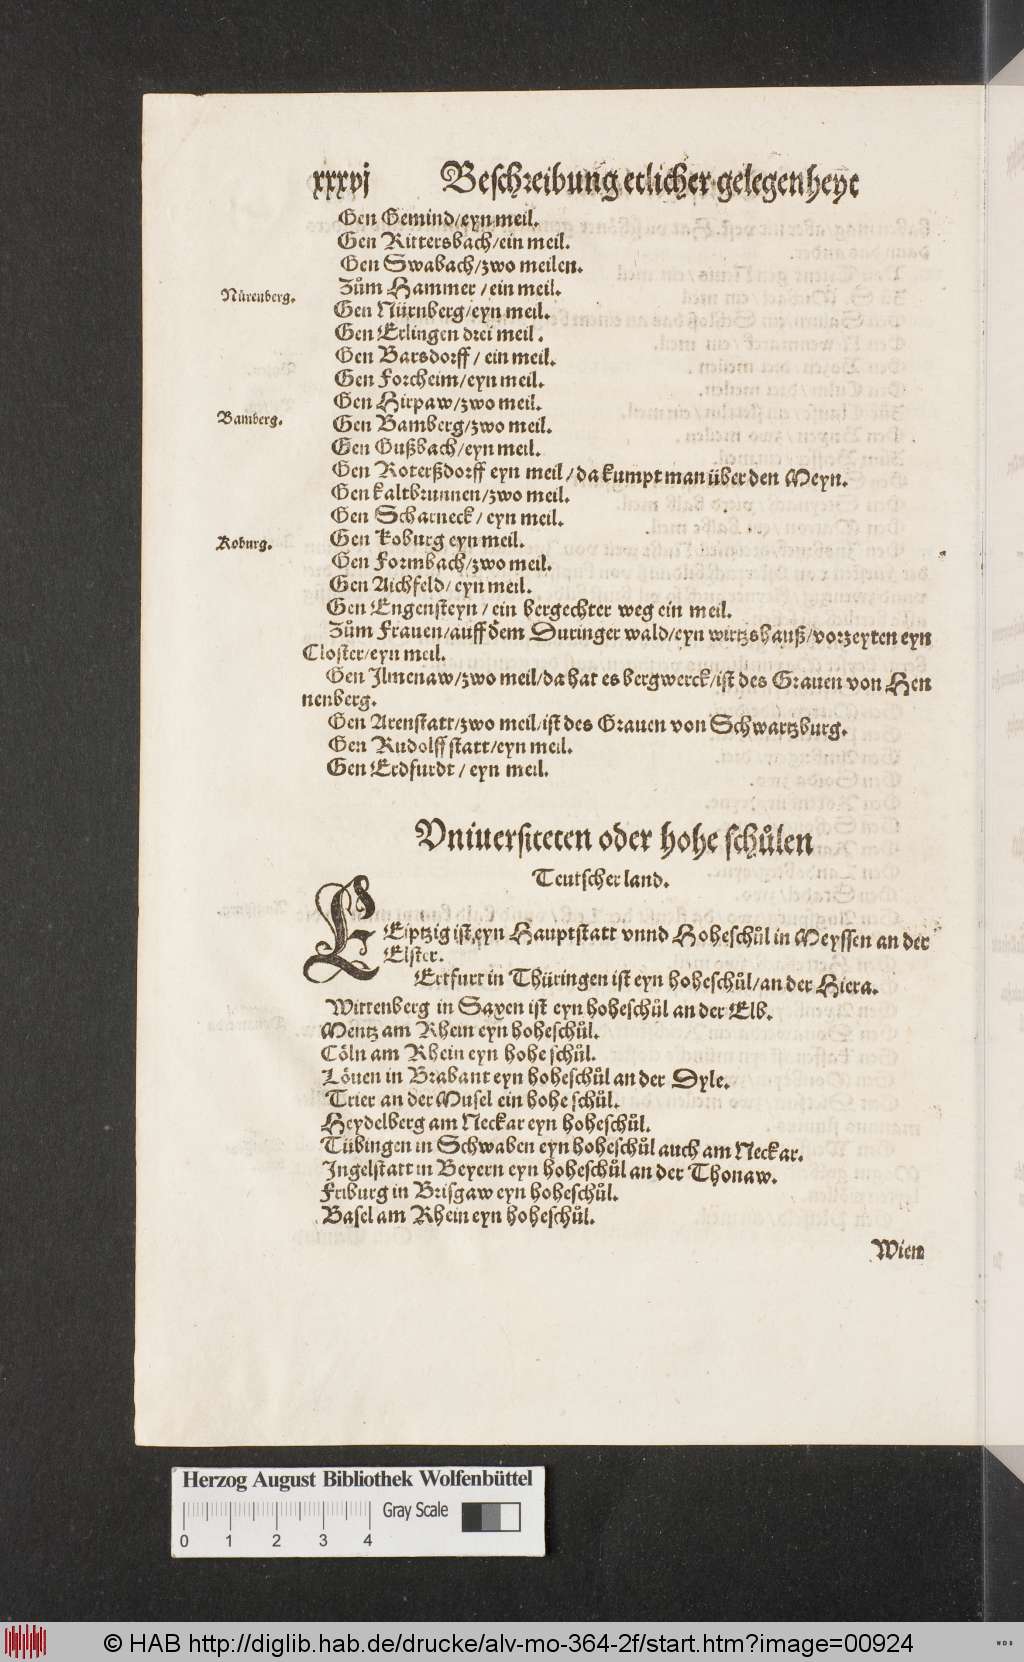 xxxvj Beschreibung etlicher gelegenheyt
Gen Gemind/eyn meil.
Gen Rittersbach/ein meil.
Gen Swabach/zwo meilen.
Zům Hammer/ein meil.
Nürenberg.
Gen Nürnberg/eyn meil.
Gen Erlingen drei meil.
Gen Barsdorff/ein meil.
Gen Forcheim/eyn meil.
Gen Hirpaw/zwo meil.
Bamberg.
Gen Bamberg/zwo meil.
Gen Gußbach/eyn meil.
Gen Roterßdorff eyn meil/da kumpt man über den Meyn.
Gen kaltbrunnen/zwo meil.
Gen Scharneck/eyn meil.
Koburg.
Gen Koburg eyn meil.
Gen Formbach/zwo meil.
Gen Aichfeld/eyn meil.
Gen Engensteyn/ein bergechter weg ein meil.
Zům Frauen/auff dem Duringer wald/eyn wirtzshauß/vorzeyten eyn
Closter/eyn meil.
Gen Jlmenaw/zwo meil/da hat es bergwerck/ist des Grauen von Hen
nenberg.
Gen Arenstatt/zwo meil/ist des Grauen von Schwartzburg.
Gen Rudolffstatt/eyn meil.
Gen Erdfurdt/eyn meil.
Vniuersiteten oder hohe schůlen
Teutscher land.
LEiptzig ist eyn Hauptstatt vnnd Hoheschůl in Meyssen an der
Elster.
Ertfurt in Thüringen ist eyn hoheschůl/an der Hiera.
Wittenberg in Saxen ist eyn hoheschůl an der Elb.
Mentz am Rhein eyn hoheschůl.
Cöln am Rhein eyn hohe schůl.
Löuen in Brabant eyn hoheschůl an der Dyle.
Trier an der Musel ein hohe schůl.
Heydelberg am Neckar eyn hoheschůl.
Tübingen in Schwaben eyn hoheschůl auch am Neckar.
Jngelstatt in Beyern eyn hoheschůl an der Thonaw.
Friburg in Brisgaw eyn hoheschůl.
Basel am Rhein eyn hoheschůl.
Wien
Herzog August Bibliothek Wolfenbüttel
Gray Scale
0 1 2 3 4
© HAB http://diglib.hab.de/drucke/alv-mo-364-2f/start.htm?image=00924